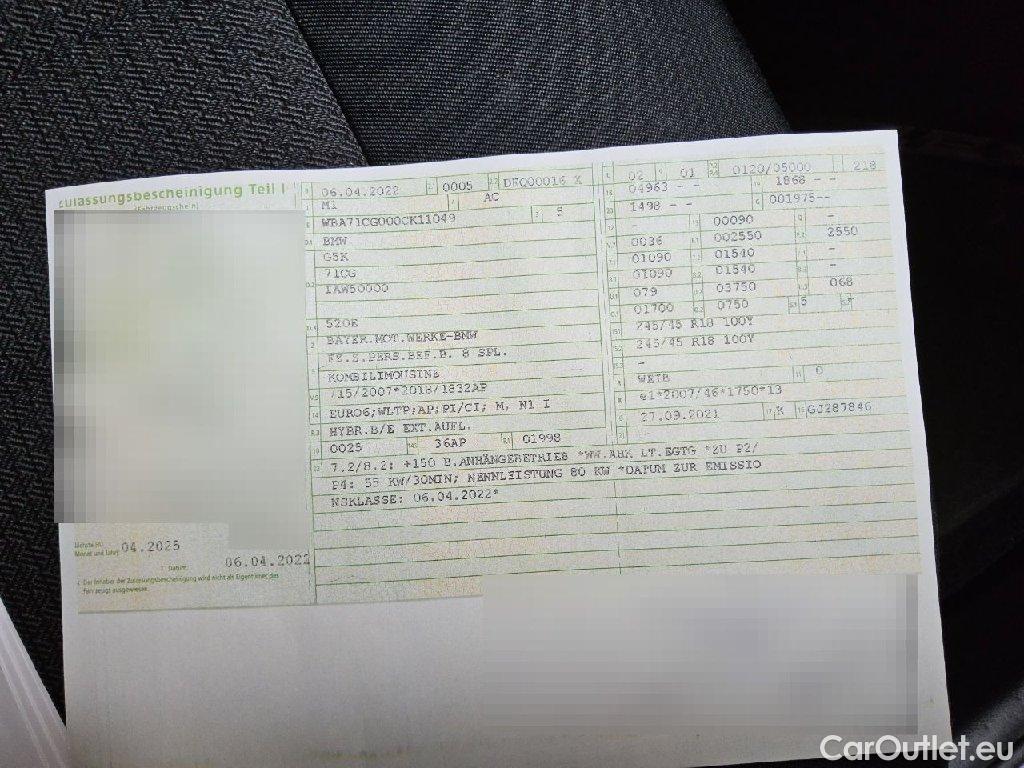 Zulassungsbescheinigung Teil I
(Fahrzeugschein)
06.04.2022 0005
M1 AC
WBA71CG000CK11049 5
BMW
G5K
71CG
IAW50000
520E
BAYER.MOT.WERKE-BMW
FZ.Z.PERS.BEF.B. 8 SPL.
KOMBILIMOUSINE
715/2007*2018/1832AP
EURO6;WLTP;AP;PI/CI; M, N1 I
HYBR.B/E EXT.AUFL.
0025 36AP 01998
7.2/8.2: +150 B.ANHÄNGEBETRIEB *WW.AHK LT.EGTG *ZU P2/
P4: 55 KW/30MIN; NENNLEISTUNG 80 KW *DATUM ZUR EMISSIO
NSKLASSE: 06.04.2022*
02 01 0120/05000 218
04963 - - 1868 - -
1498 - - 001975--
- 00090 -
0036 002550 2550
01090 01540 -
01090 01540 -
079 03750 068
01700 0750 5 -
245/45 R18 100Y
245/45 R18 100Y
-
0
e1*2007/46*1750*13
27.09.2021 K GJ287846
Nächste HU
Monat und Jahr 04.2025
Datum 06.04.2022
Der Inhaber der Zulassungsbescheinigung wird nicht als Eigentümer des
Fahrzeugs ausgewiesen.
CarOutlet.eu